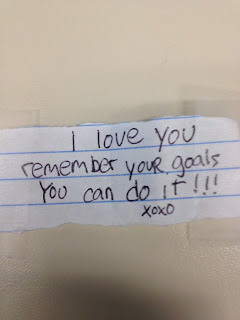 I love you
remember your goals
You can do it!!!
xoxo